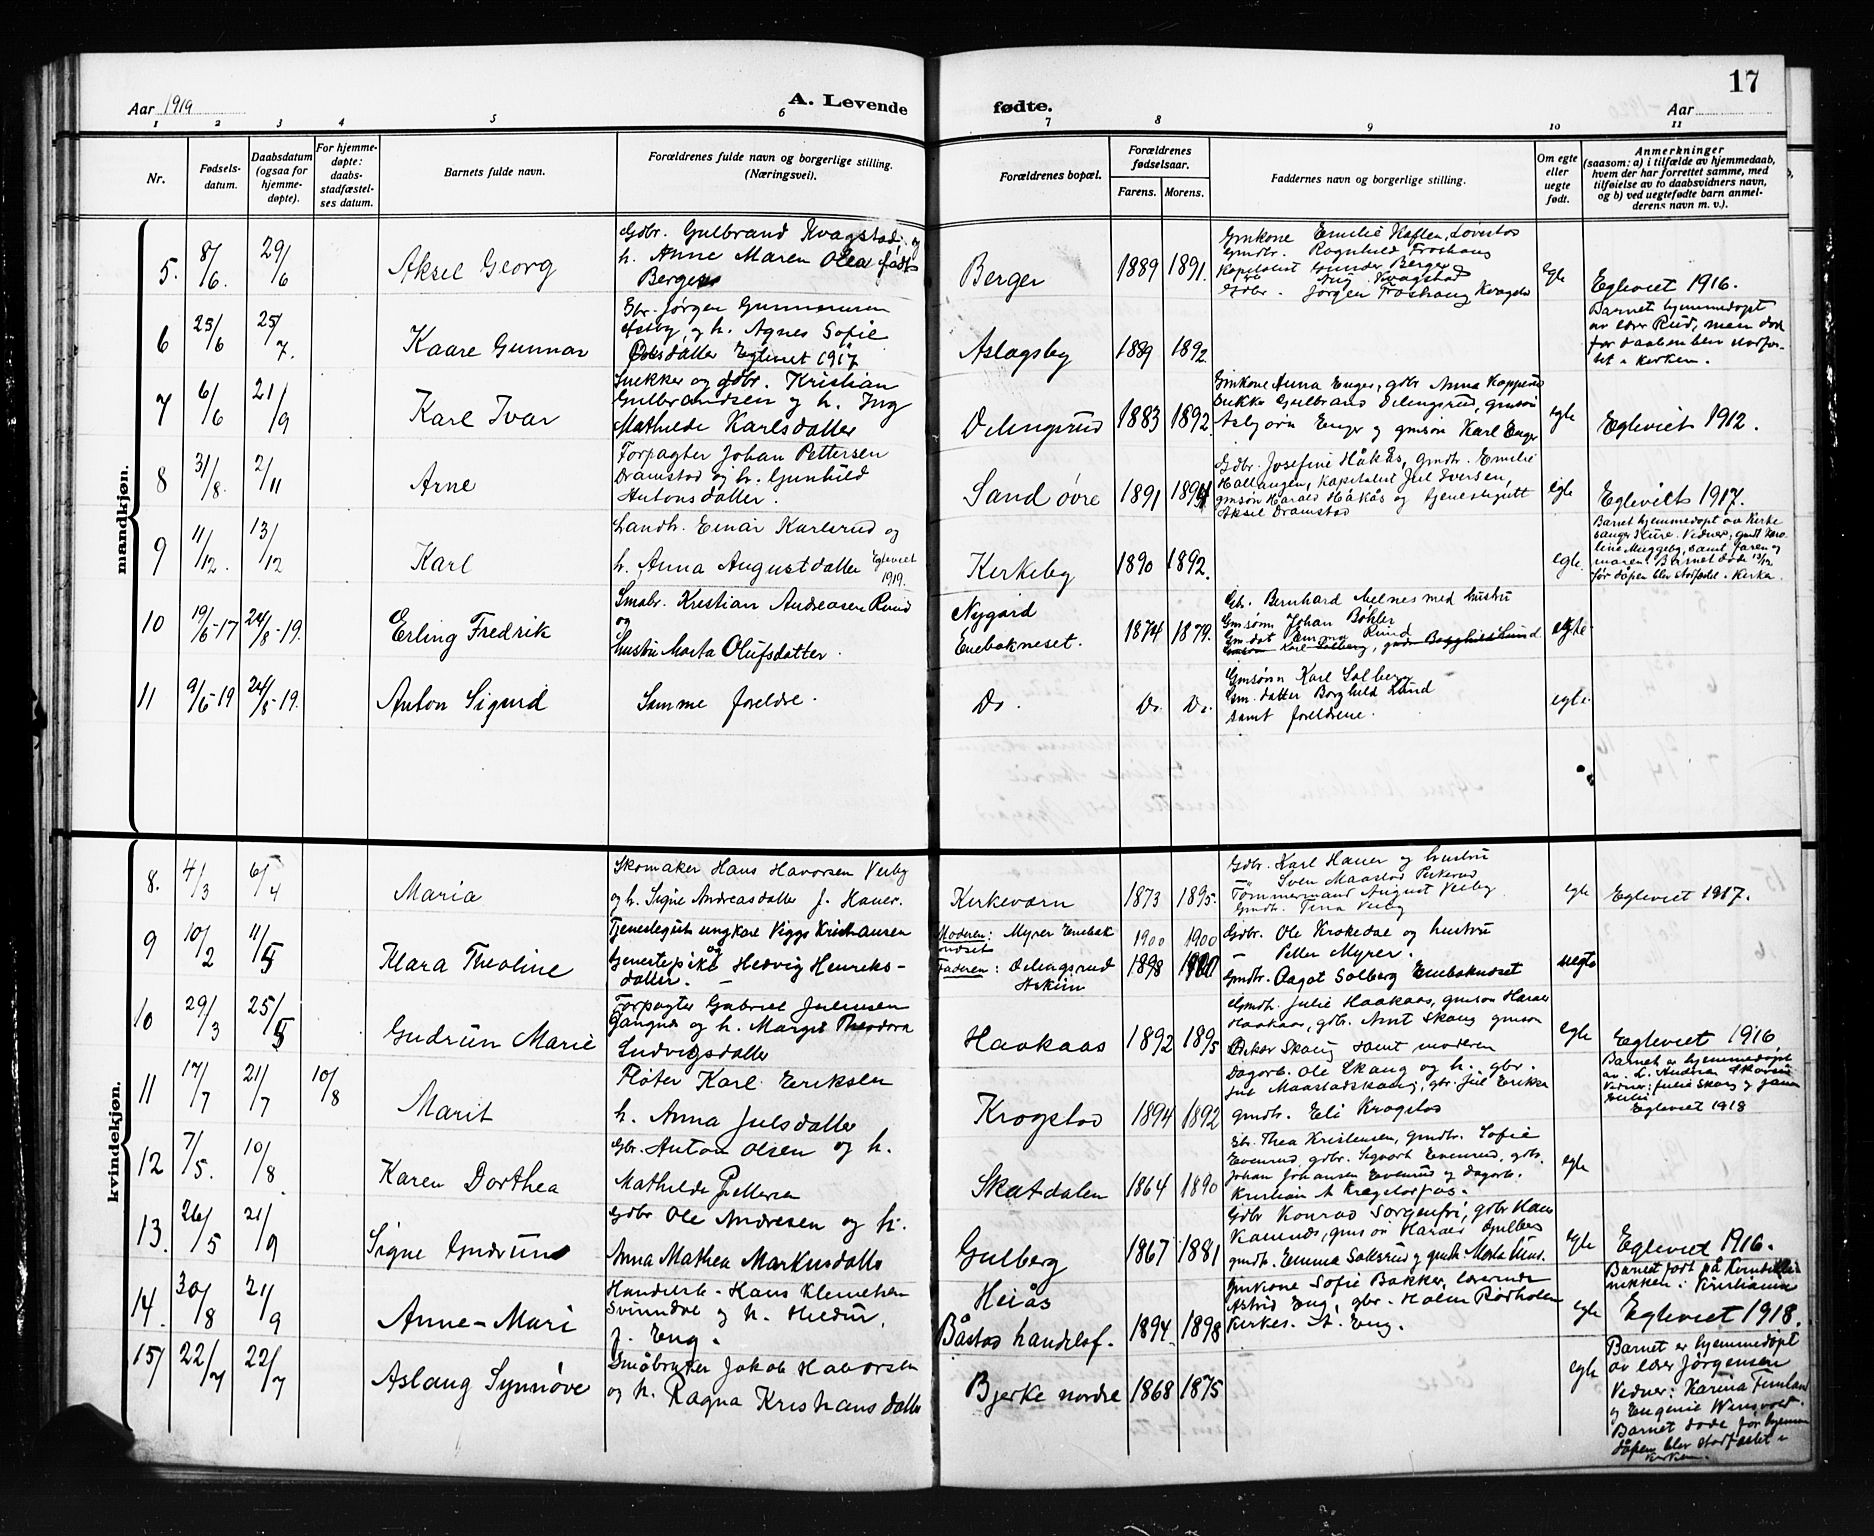 Aar 1919
A. Levende
fødte.
17
Aar
1 2 3 4 5 6 7 8 9 10 11
Nr.
Fødsels-
datum.
Daabsdatum
(ogsaa for
hjemme-
døpte).
For hjemme-
døpte:
daabs-
stadfæstel-
ses datum.
Barnets fulde navn.
Forældrenes fulde navn og borgerlige stilling.
(Næringsvei).
Forældrenes bopæl.
Forældrenes
fødselsaar.
Farens. Morens.
Faddernes navn og borgerlige stilling.
Om egte
eller
uegte
født.
Anmerkninger
(saasom: a) i tilfælde av hjemmedaab,
hvem der har forrettet samme, med
tilføielse av to daabsvidners navn,
og b) ved uegtefødte barn anmel-
derens navn m. v.).
mandkjøn.
5. 8/6. 29/6 Aksel Georg
Gdbr. Gulbrand Kvagstad, og
h. Anne Maren Olea født
Berger
Berger 1889 1891.
Gmkone Emilie Haflen,
Gmdtr. Ragnhild Froshaug
Kapitalist Gunder Berger
Aug. Kvagstad
Gdbr. Jørgen Froshaug Kvagstad
egte Egteviet 1916.
6 25/6 25/7. Kaare Gunnar
Gbr. Jørgen Gunnarsen
og h. Agnes Sofie
Olesdatter Egteviet 1917
Aslagsby 1889 1892
Barnet hjemmedøpt
av lærer Rud, men død
før daaben blev stadfæs-
tet i kirken.
7 6/6 21/9 Karl Ivar
Snekker og gdbr. Kristian
Gulbrandsen og h. Ing
Mathilde Karlsdatter
Delingsrud 1883 1892.
Gmkone Anna Enger, gdbr Anna
Gulbrand Delingsrud, gmsøn
Asbjørn Enger og gmsøn Karl Enger
egte Egteviet 1912.
8 31/8. 2/11 Arne
Forpagter Johan Pettersen
Dramstad og h. Gunhild
Antonsdatter.
Sand øvre 1891 1894
Gdbr. Josefine Håkås, gmdtr. Emilie
Hallangen, Kapitalist Jul Iversen,
gmsøn Harald Håkås og tjenestegutt
Aksel Dramstad
egte Egteviet 1917.
9 11/12. 13/12 Karl
Landh. Einar Karlsrud og
h. Anna Augustdatter Egteviet
1919.
Kirkeby 1890 1892.
egte.
Barnet hjemmedøpt av Kirke
sanger Kure. Vidner, gmdt Karo
line Muggeby, samt faren og
moren. Barnet døde 13/12
før dåpen blev stadfæstet i Kirka.
10 19/6-17 24/8-19. Erling Fredrik
Smabr. Kristian Andreasen Rund
og
hustru Marta Olufsdatter.
Nygård
Enebakneset. 1874 1879.
Gb. Bernhard Melnes med hustru
Gmsønn Johan Bøhler
Gm.dat Emma Rund
Gmsøn Karl Solberg, gmdtr Borghild Lund
egte
11 9/6-19 24/8-19. Anton Sigurd
Samme foreldre.
Do. Do. Do.
Gmsønn Karl Solberg
Gm. datter Borghild Lund
samt foreldrene.
egte.
kvindekjøn.
8. 4/3 6/4 Maria
Skomaker Hans Havorsen Veiby
og h. Signe Andreasdatter f. Hauer.
Kirkevarn 1873 1895.
Gdbr. Karl Hauer og hustru
Sven Maastad Pikerud
Tømmermand August Veiby
Gmdtr. Tina Veiby
egte Egteviet 1917.
9 10/2 11/5 Klara Theoline
Tjenestegut ungkar Viggo Kristiansen
og
tjenestepike Hedvig Henriks-
datter.
Moderen: Myrer Enebak
neset 1900 1900
Faderen: Delingsrud
Askim 1898 1900
Gdbr. Ole Krokedal og hustru
Petter Myrer.
Gmdtr. Aagot Solberg Enebakneset
uegte
10 29/3 25/5 Gudrun Marie
Forpagter Gabriel Juliussen
Gangnes og h. Margit Theodora
Ludvigsdatter
Haakaas 1892 1895
Gmdtr. Julie Haakaas, gmsøn Harald
Haakaas, gdbr. Arnt Skaug gmsøn
Oskar Skaug samt moderen
egte Egteviet 1916
11 17/7 21/7 10/8 Marit
Fløter Karl Eriksen
h. Anna Julsdatter
Krogstad 1894 1892
Dagarb. Ole Skaug og h. gbr.
Jul Maastadskaug, gbr. Jul Eriksen
gmdtr. Eli Krogstad
Barnet er hjemmedøpt
av L. Andrea
Vidner: Julie Skaug og
Egteviet 1918
12 7/5. 10/8. Karen Dorthea
Gbr. Anton Olsen og h.
Mathilde Pettersen
Skatdalen 1864 1890
Gbr. Thea Kristensen, gmdtr. Sofie
Evenrud gdbr. Sigvart Evenrud, gbr.
Johan Johansen Evenrud og dagarb.
Kristian A Krogstorpas.
egte
13. 26/5 21/9 Signe Gudrun
Gdbr Ole Andresen og h.
Anna Mathea Markusdatter
Gulberg 1867 1881
Gdbr Konrad Sorgenfri, gdbr Hans
Harald Gulberg
gmdt. Emma Solberg og gmdt. Marta
egte Egteviet 1916.
14. 30/8 21/9 Anne-Mari
Handelsb. Hans Klemetsen
Svinndal og h. Hildur,
f. Eng.
Heiås
Båstad handelsf. 1894 1898
Gmkone Sofie Bakker, lærerinde
Astrid Eng, gbr. Holm Rødholen
Kirkes. A. Eng.
egte
Barnet født på
Kristiania
Egteviet 1918.
15 22/7 22/7 Aslaug Synnøve
Småbruker Jakob Halvorsen
og h. Ragna Kristiansdatter
Bjerke nordre 1868 1875
egte
Barnet er hjemmedøpt
av lærer Jørgensen
Vidner: Karina Finland
og Eugenie
Barnet døde før hjemme
dåpen blev stadfæstet i
kirken.